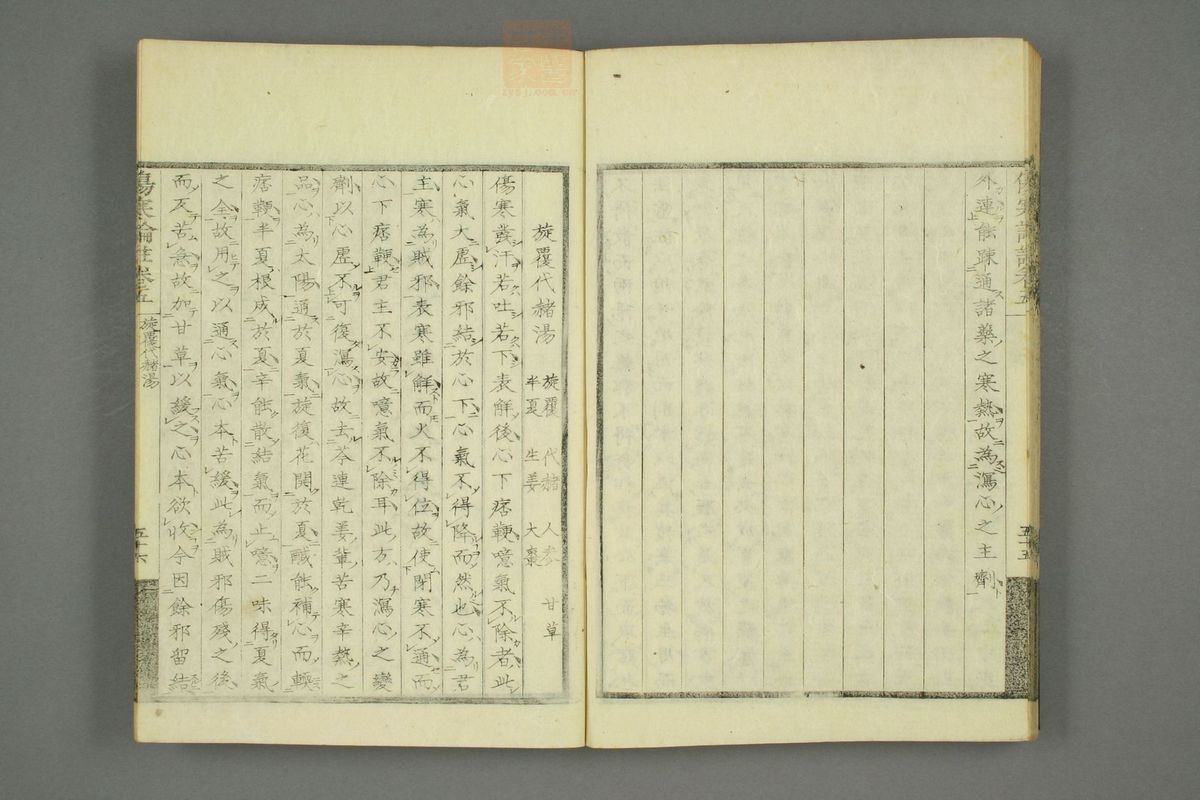 外連能疎通諸藥之寒熱故為瀉心之主劑
五十五
旋覆代赭湯
旋覆 代赭 人参 甘草
半夏 生姜 大棗
傷寒發汗若吐若下表解後心下痞鞕噫氣不除者此
心氣大虛餘邪結於心下心氣不得降而然也心為君
主寒為賊邪表寒雖解而火不得位故使閉寒不通而
心下痞鞕君主不安故噫氣不除耳此方乃瀉心之變
劑以心虛不可復瀉心故去芩連乾姜輩苦寒辛熱之
品心為太陽通於夏氣旋復花開於夏鹹能補心而耎
痞鞕半夏根成於夏辛能散結氣而止噫二味得夏氣
之全故用之以通心氣心本苦緩此為賊邪傷殘之後
而反苦急故加甘草以緩之心本欲收今因餘邪留結
傷寒論註卷五
旋覆代赭湯
五十六